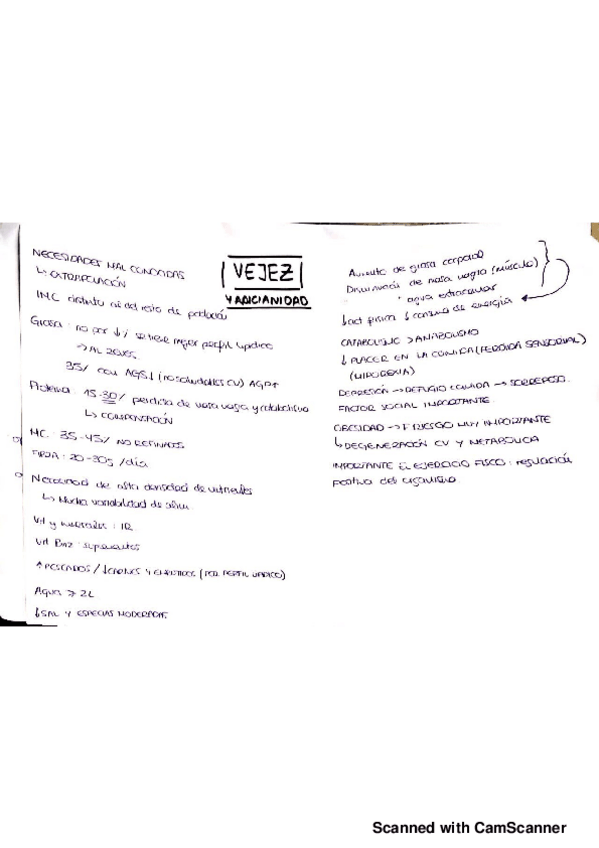 VEJEZ
Y ANCIANIDAD
NECESIDADES MAL CONOCIDAS
↳ EXTRAPOLACIÓN
IMC distinto al del resto de población
Grasa: no por ↓% se tiene mejor perfil lipídico
→ AL revés.
35% con AGS↓ (no saludables CV) AGP↑
Proteína: 15-30% perdida de masa magra y catabolismo
↳ COMPENSACIÓN
HC: 35-45% NO REFINADOS
FIBRA: 20-30g /día
Necesidad de alta densidad de nutrientes
↳ Mucha variabilidad de alim.
Vit y minerales: IR
Vit B12: suplementos
↑ PESCADOS / ↓ CARNES Y EMBUTIDOS (POR PERFIL LIPIDICO)
Agua ≥ 2L
↓ SAL Y ESPECIAS MODERADAS
Aumento de grasa corporal
Disminución de masa magra (músculo)
" agua extracelular
↓ act física ↓ consumo de energía
CATABOLISMO > ANABOLISMO
↓ PLACER EN LA COMIDA (PERDIDA SENSORIAL)
(HIPOGEUSIA)
DEPRESIÓN → REFUGIO COMIDA → SOBREPESO.
FACTOR SOCIAL IMPORTANTE
OBESIDAD → F. RIESGO MUY IMPORTANTE
↳ DEGENERACIÓN CV Y METABÓLICA
IMPORTANTE EL EJERCICIO FISICO: regulación
positiva del organismo
Scanned with CamScanner